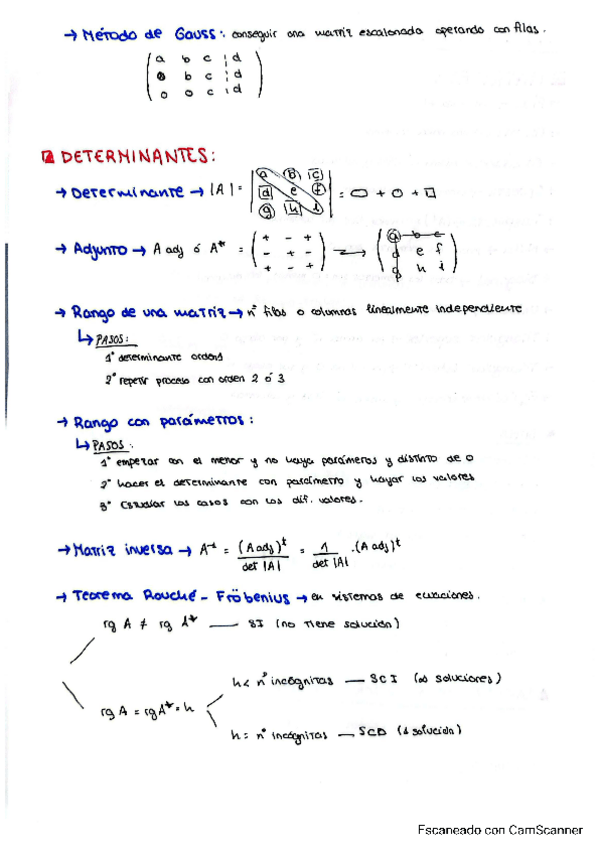 → Método de Gauss: conseguir una matriz escalonada operando con filas.
a b c | d
0 b c | d
0 0 c | d
DETERMINANTES:
→ Determinante → |A| =
a b c
d e f
g h i
= ⬭ + O + □
→ Adjunto → A adj ó A* =
+ - +
- + -
+ - +
→
a b c
d e f
g h i
→ Rango de una matriz → nº filas o columnas linealmente independiente
↳ PASOS:
1º determinante orden 1
2º repetir proceso con orden 2 ó 3
→ Rango con parámetros:
↳ PASOS:
1º empezar con el menor y no haya parámeros y distinto de 0
2º hacer el determinante con parámetro y hayar los valores
3º Estudiar los casos con los dif. valores.
→ Matriz inversa → A⁻¹ = (A adj)ᵗ / det |A| = 1 / det |A| · (A adj)ᵗ
→ Teorema Rouché - Fröbenius → en sistemas de ecuaciones.
rg A ≠ rg A* — SI (no tiene solución)
h < nº incógnitas — SCI (∞ soluciones)
rg A = rg A* = h
h = nº incógnitas — SCD (1 solución)
Escaneado con CamScanner